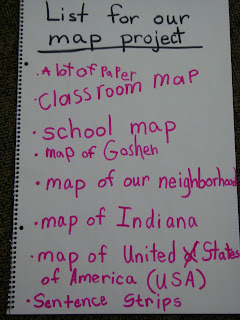 List for our
map project
• A lot of Paper
• Classroom map
• school map
• map of Goshen
• map of our neighborhood
• map of Indiana
• map of United X States
of America (USA)
• Sentence Strips